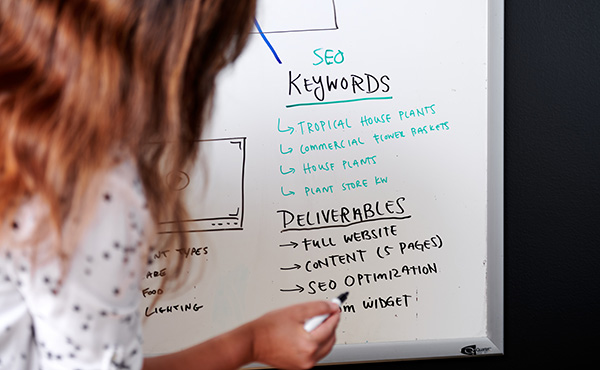 SEO
KEYWORDS
TROPICAL HOUSE PLANTS
COMMERCIAL FLOWER BASKETS
HOUSE PLANTS
PLANT STORE KW
DELIVERABLES
→ FULL WEBSITE
→ CONTENT (5 PAGES)
→ SEO OPTIMIZATION
WIDGET
TYPES
FOOD
LIGHTING